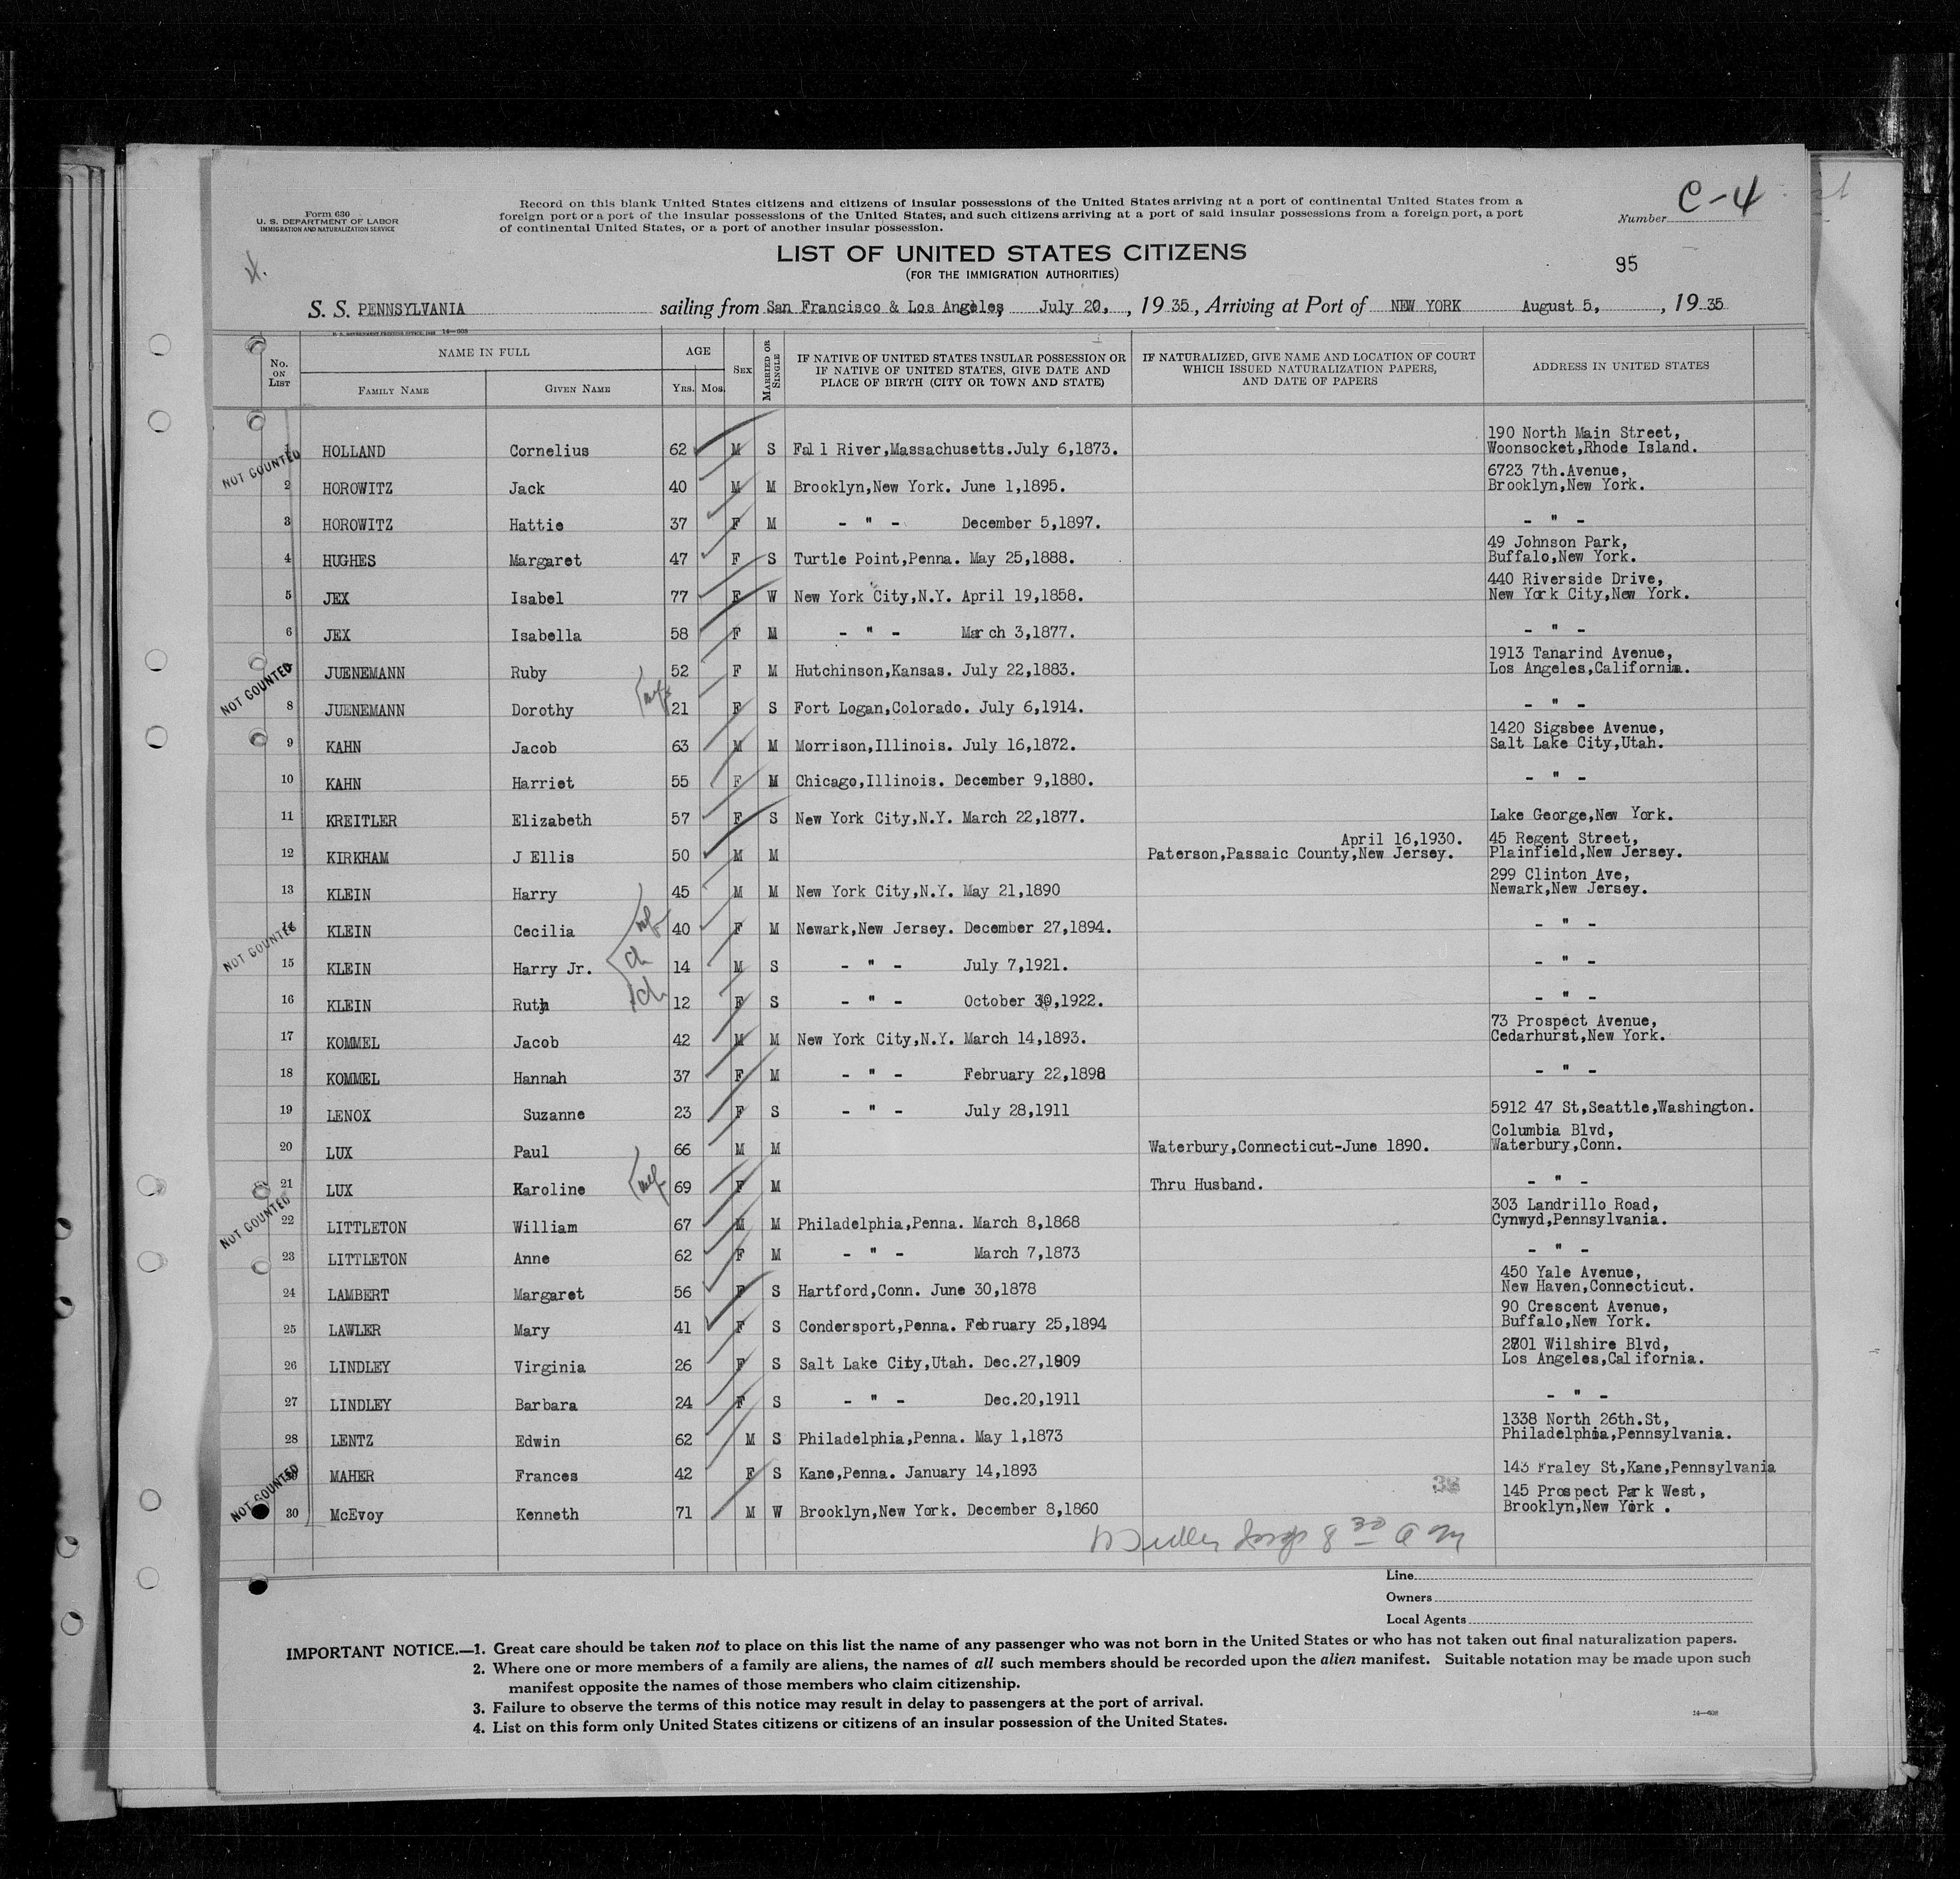 Form 630
U. S. DEPARTMENT OF LABOR
IMMIGRATION AND NATURALIZATION SERVICE
Record on this blank United States citizens and citizens of insular possessions of the United States arriving at a port of continental United States from a
foreign port or a port of the insular possessions of the United States, and such citizens arriving at a port of said insular possessions from a foreign port, a port
of continental United States, or a port of another insular possession.
Number C-4
LIST OF UNITED STATES CITIZENS
(FOR THE IMMIGRATION AUTHORITIES)
95
S. S. PENNSYLVANIA sailing from San Francisco & Los Angeles, July 20, , 19 35, Arriving at Port of NEW YORK August 5, , 19 35
No. ON LIST
NAME IN FULL
FAMILY NAME GIVEN NAME
AGE
YRS. MOS.
SEX
MARRIED OR SINGLE
IF NATIVE OF UNITED STATES INSULAR POSSESSION OR
IF NATIVE OF UNITED STATES, GIVE DATE AND
PLACE OF BIRTH (CITY OR TOWN AND STATE)
IF NATURALIZED, GIVE NAME AND LOCATION OF COURT
WHICH ISSUED NATURALIZATION PAPERS,
AND DATE OF PAPERS
ADDRESS IN UNITED STATES
190 North Main Street,
1 HOLLAND Cornelius 62 M S Fall River,Massachusetts.July 6,1873. Woonsocket,Rhode Island.
NOT COUNTED
6723 7th.Avenue,
2 HOROWITZ Jack 40 M M Brooklyn,New York. June 1,1895. Brooklyn,New York.
3 HOROWITZ Hattie 37 F M - " - December 5,1897. - " -
49 Johnson Park,
4 HUGHES Margaret 47 F S Turtle Point,Penna. May 25,1888. Buffalo,New York.
440 Riverside Drive,
5 JEX Isabel 77 F W New York City,N.Y. April 19,1858. New York City,New York.
6 JEX Isabella 58 F M - " - March 3,1877. - " -
1913 Tanarind Avenue,
JUENEMANN Ruby 52 F M Hutchinson,Kansas. July 22,1883. Los Angeles,California.
NOT COUNTED
8 JUENEMANN Dorothy 21 F S Fort Logan,Colorado. July 6,1914. - " -
1420 Sigsbee Avenue,
9 KAHN Jacob 63 M M Morrison,Illinois. July 16,1872. Salt Lake City,Utah.
10 KAHN Harriet 55 F M Chicago,Illinois. December 9,1880. - " -
11 KREITLER Elizabeth 57 F S New York City,N.Y. March 22,1877. Lake George,New York.
April 16,1930. 45 Regent Street,
12 KIRKHAM J Ellis 50 M M Paterson,Passaic County,New Jersey. Plainfield,New Jersey.
299 Clinton Ave,
13 KLEIN Harry 45 M M New York City,N.Y. May 21,1890 Newark,New Jersey.
14 KLEIN Cecilia 40 F M Newark,New Jersey. December 27,1894. - " -
NOT COUNTED
15 KLEIN Harry Jr. ch 14 M S - " - July 7,1921. - " -
16 KLEIN Ruth ch 12 F S - " - October 30,1922. - " -
73 Prospect Avenue,
17 KOMMEL Jacob 42 M M New York City,N.Y. March 14,1893. Cedarhurst,New York.
18 KOMMEL Hannah 37 F M - " - February 22,1898 - " -
19 LENOX Suzanne 23 F S - " - July 28,1911 5912 47 St,Seattle,Washington.
Columbia Blvd,
20 LUX Paul 66 M M Waterbury,Connecticut-June 1890. Waterbury,Conn.
21 LUX Karoline 69 F M Thru Husband. - " -
NOT COUNTED
303 Landrillo Road,
22 LITTLETON William 67 M M Philadelphia,Penna. March 8,1868 Cynwyd,Pennsylvania.
23 LITTLETON Anne 62 F M - " - March 7,1873 - " -
450 Yale Avenue,
24 LAMBERT Margaret 56 F S Hartford,Conn. June 30,1878 New Haven,Connecticut.
90 Crescent Avenue,
25 LAWLER Mary 41 F S Condersport,Penna. February 25,1894 Buffalo,New York.
2801 Wilshire Blvd,
26 LINDLEY Virginia 26 F S Salt Lake City,Utah. Dec.27,1909 Los Angeles,California.
27 LINDLEY Barbara 24 F S - " - Dec.20,1911 - " -
1338 North 26th.St,
28 LENTZ Edwin 62 M S Philadelphia,Penna. May 1,1873 Philadelphia,Pennsylvania.
MAHER Frances 42 F S Kane,Penna. January 14,1893 143 Fraley St,Kane,Pennsylvania
NOT COUNTED
145 Prospect Park West,
30 McEvoy Kenneth 71 M W Brooklyn,New York. December 8,1860 Brooklyn,New York .
8 30 A M
Line
Owners
Local Agents
IMPORTANT NOTICE.—1. Great care should be taken not to place on this list the name of any passenger who was not born in the United States or who has not taken out final naturalization papers.
2. Where one or more members of a family are aliens, the names of all such members should be recorded upon the alien manifest. Suitable notation may be made upon such
manifest opposite the names of those members who claim citizenship.
3. Failure to observe the terms of this notice may result in delay to passengers at the port of arrival.
4. List on this form only United States citizens or citizens of an insular possession of the United States.
14—608